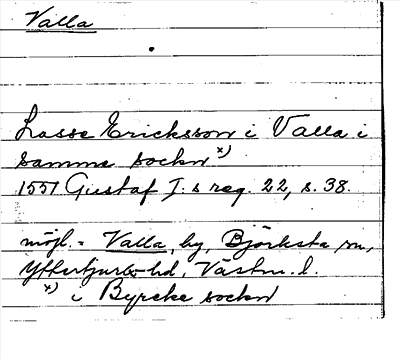 Valla
Lasse Ericksson i Valla i
samma sockn x)
1551 Gustaf I:s reg. 22, s. 38.
möjl. = Valla, by, Björksta sn,
Yttertjurbo hd, Västm. l.
x) i Byrcke sockn